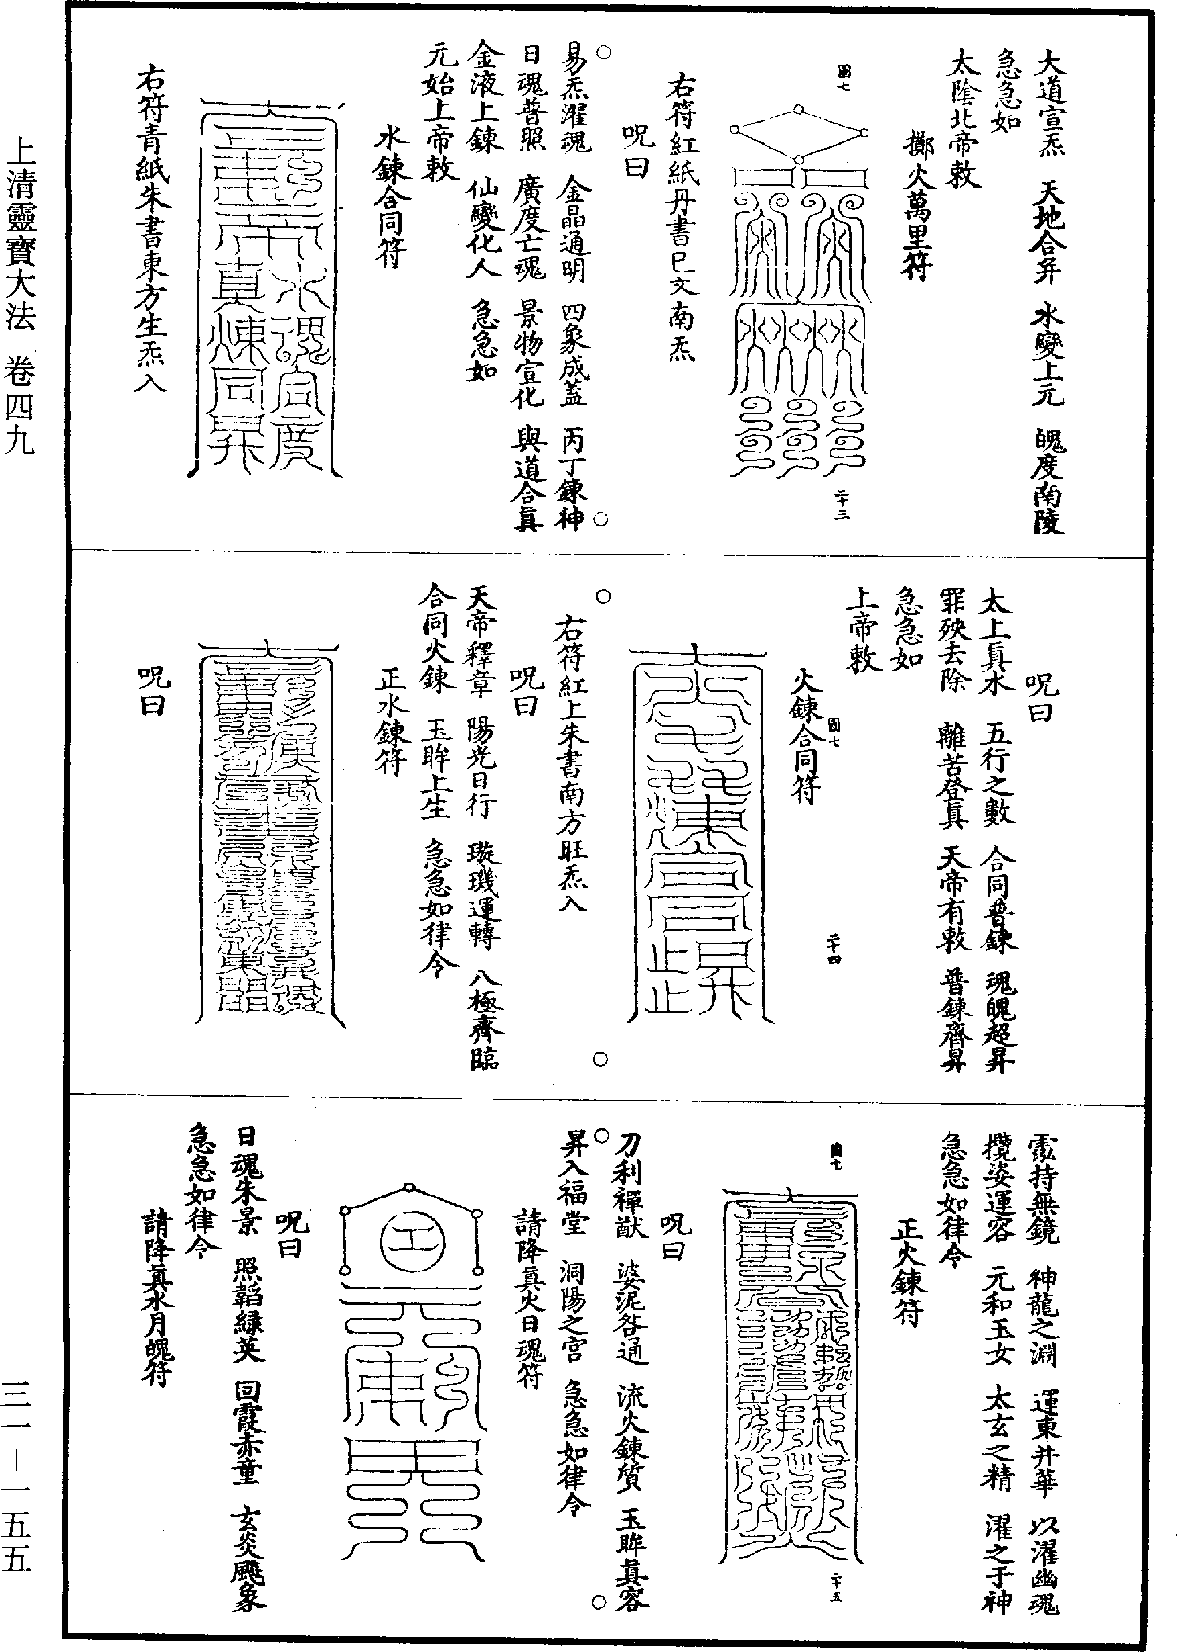 上清靈寶大法 卷四九
三一－一五五
大道宣炁 天地合并 水變上元 魄度南陵
急急如
太陰北帝敕
擲火萬里符
圖七
二十三
右符紅紙丹書巳文南炁
呪曰
易炁濯魂 金晶通明 四象成蓋 丙丁鍊神
日魂普照 廣度亡魂 景物宣化 與道合真
金液上鍊 仙變化人 急急如
元始上帝敕
水鍊合同符
右符青紙朱書東方生炁入
呪曰
太上真水 五行之數 合同普鍊 魂魄超昇
罪殃去除 離苦登真 天帝有敕 普鍊齊昇
急急如
上帝敕
火鍊合同符
圖七
二十四
右符紅上朱書南方旺炁入
呪曰
天帝釋章 陽光日行 璇璣運轉 八極齊臨
合同火鍊 玉眸上生 急急如律令
正水鍊符
呪曰
霐持無鏡 神龍之淵 運東井華 以濯幽魂
攬姿運容 元和玉女 太玄之精 濯之于神
急急如律令
正火鍊符
圖七
二十五
呪曰
刀利禪猷 婆泥咎通 流火鍊質 玉眸真容
昇入福堂 洞陽之宮 急急如律令
請降真火日魂符
呪曰
日魂朱景 照韜綠英 回霞赤童 玄炎飇象
急急如律令
請降真水月魄符